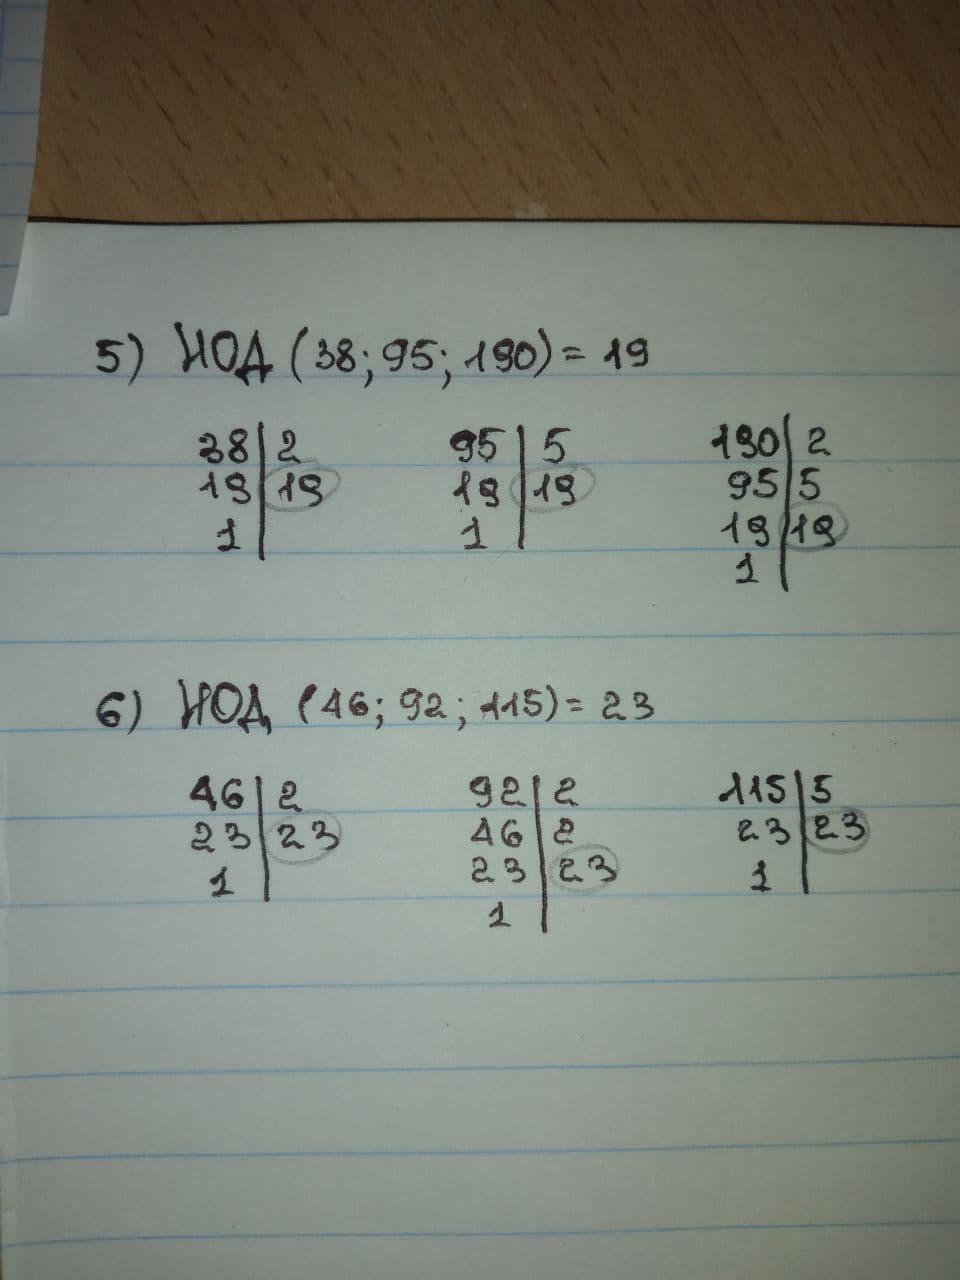 5) НОД (38; 95; 190) = 19
38 | 2
19 | 19
1 |
95 | 5
19 | 19
1 |
190 | 2
95 | 5
19 | 19
1 |
6) НОД (46; 92; 115) = 23
46 | 2
23 | 23
1 |
92 | 2
46 | 2
23 | 23
1 |
115 | 5
23 | 23
1 |